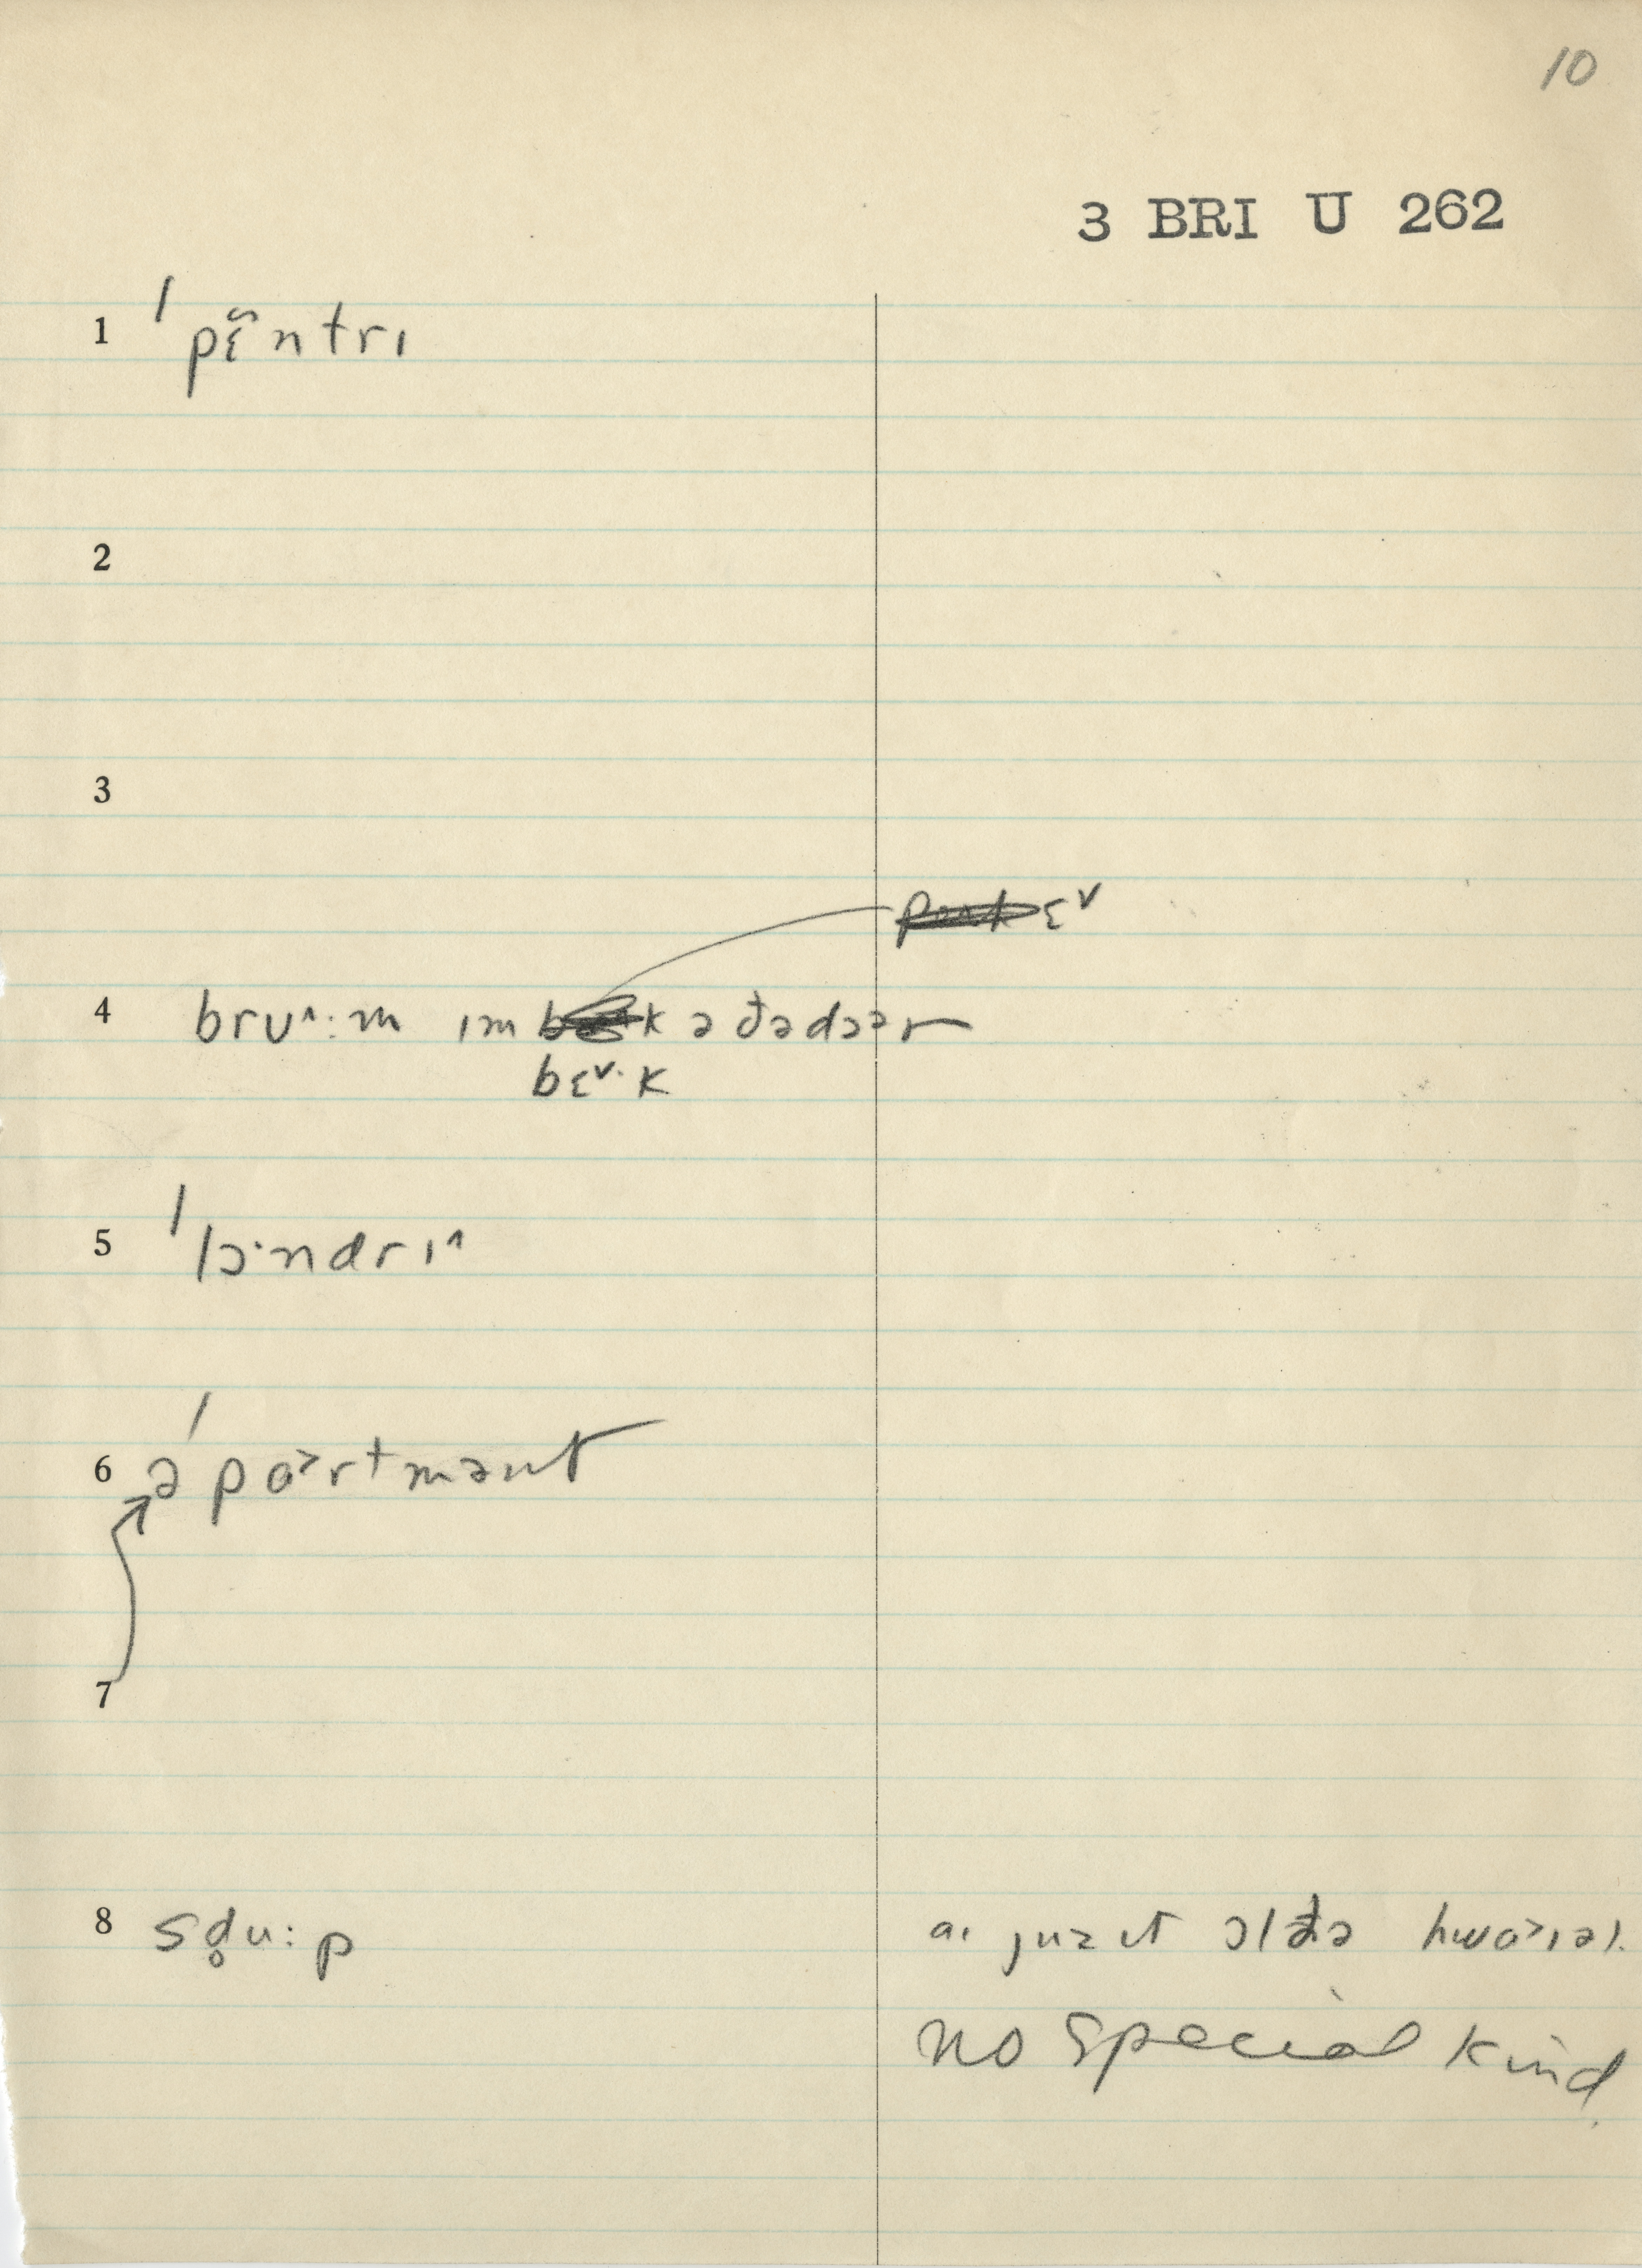 10
3 BRI U 262
1 ˈpɛ̃ntrɪ
2
3
ɛ˅
4 brʊ^:m ɪm k ə ðədɔər
bɛ˅·k
5 ˈlɔ·ndrɪ^
6 əˈpɑ>rtmənt
7
8 sd̥u:p
aɪ juz ɪt ɔl ðə hwɑ>ɪəl.
no special kind